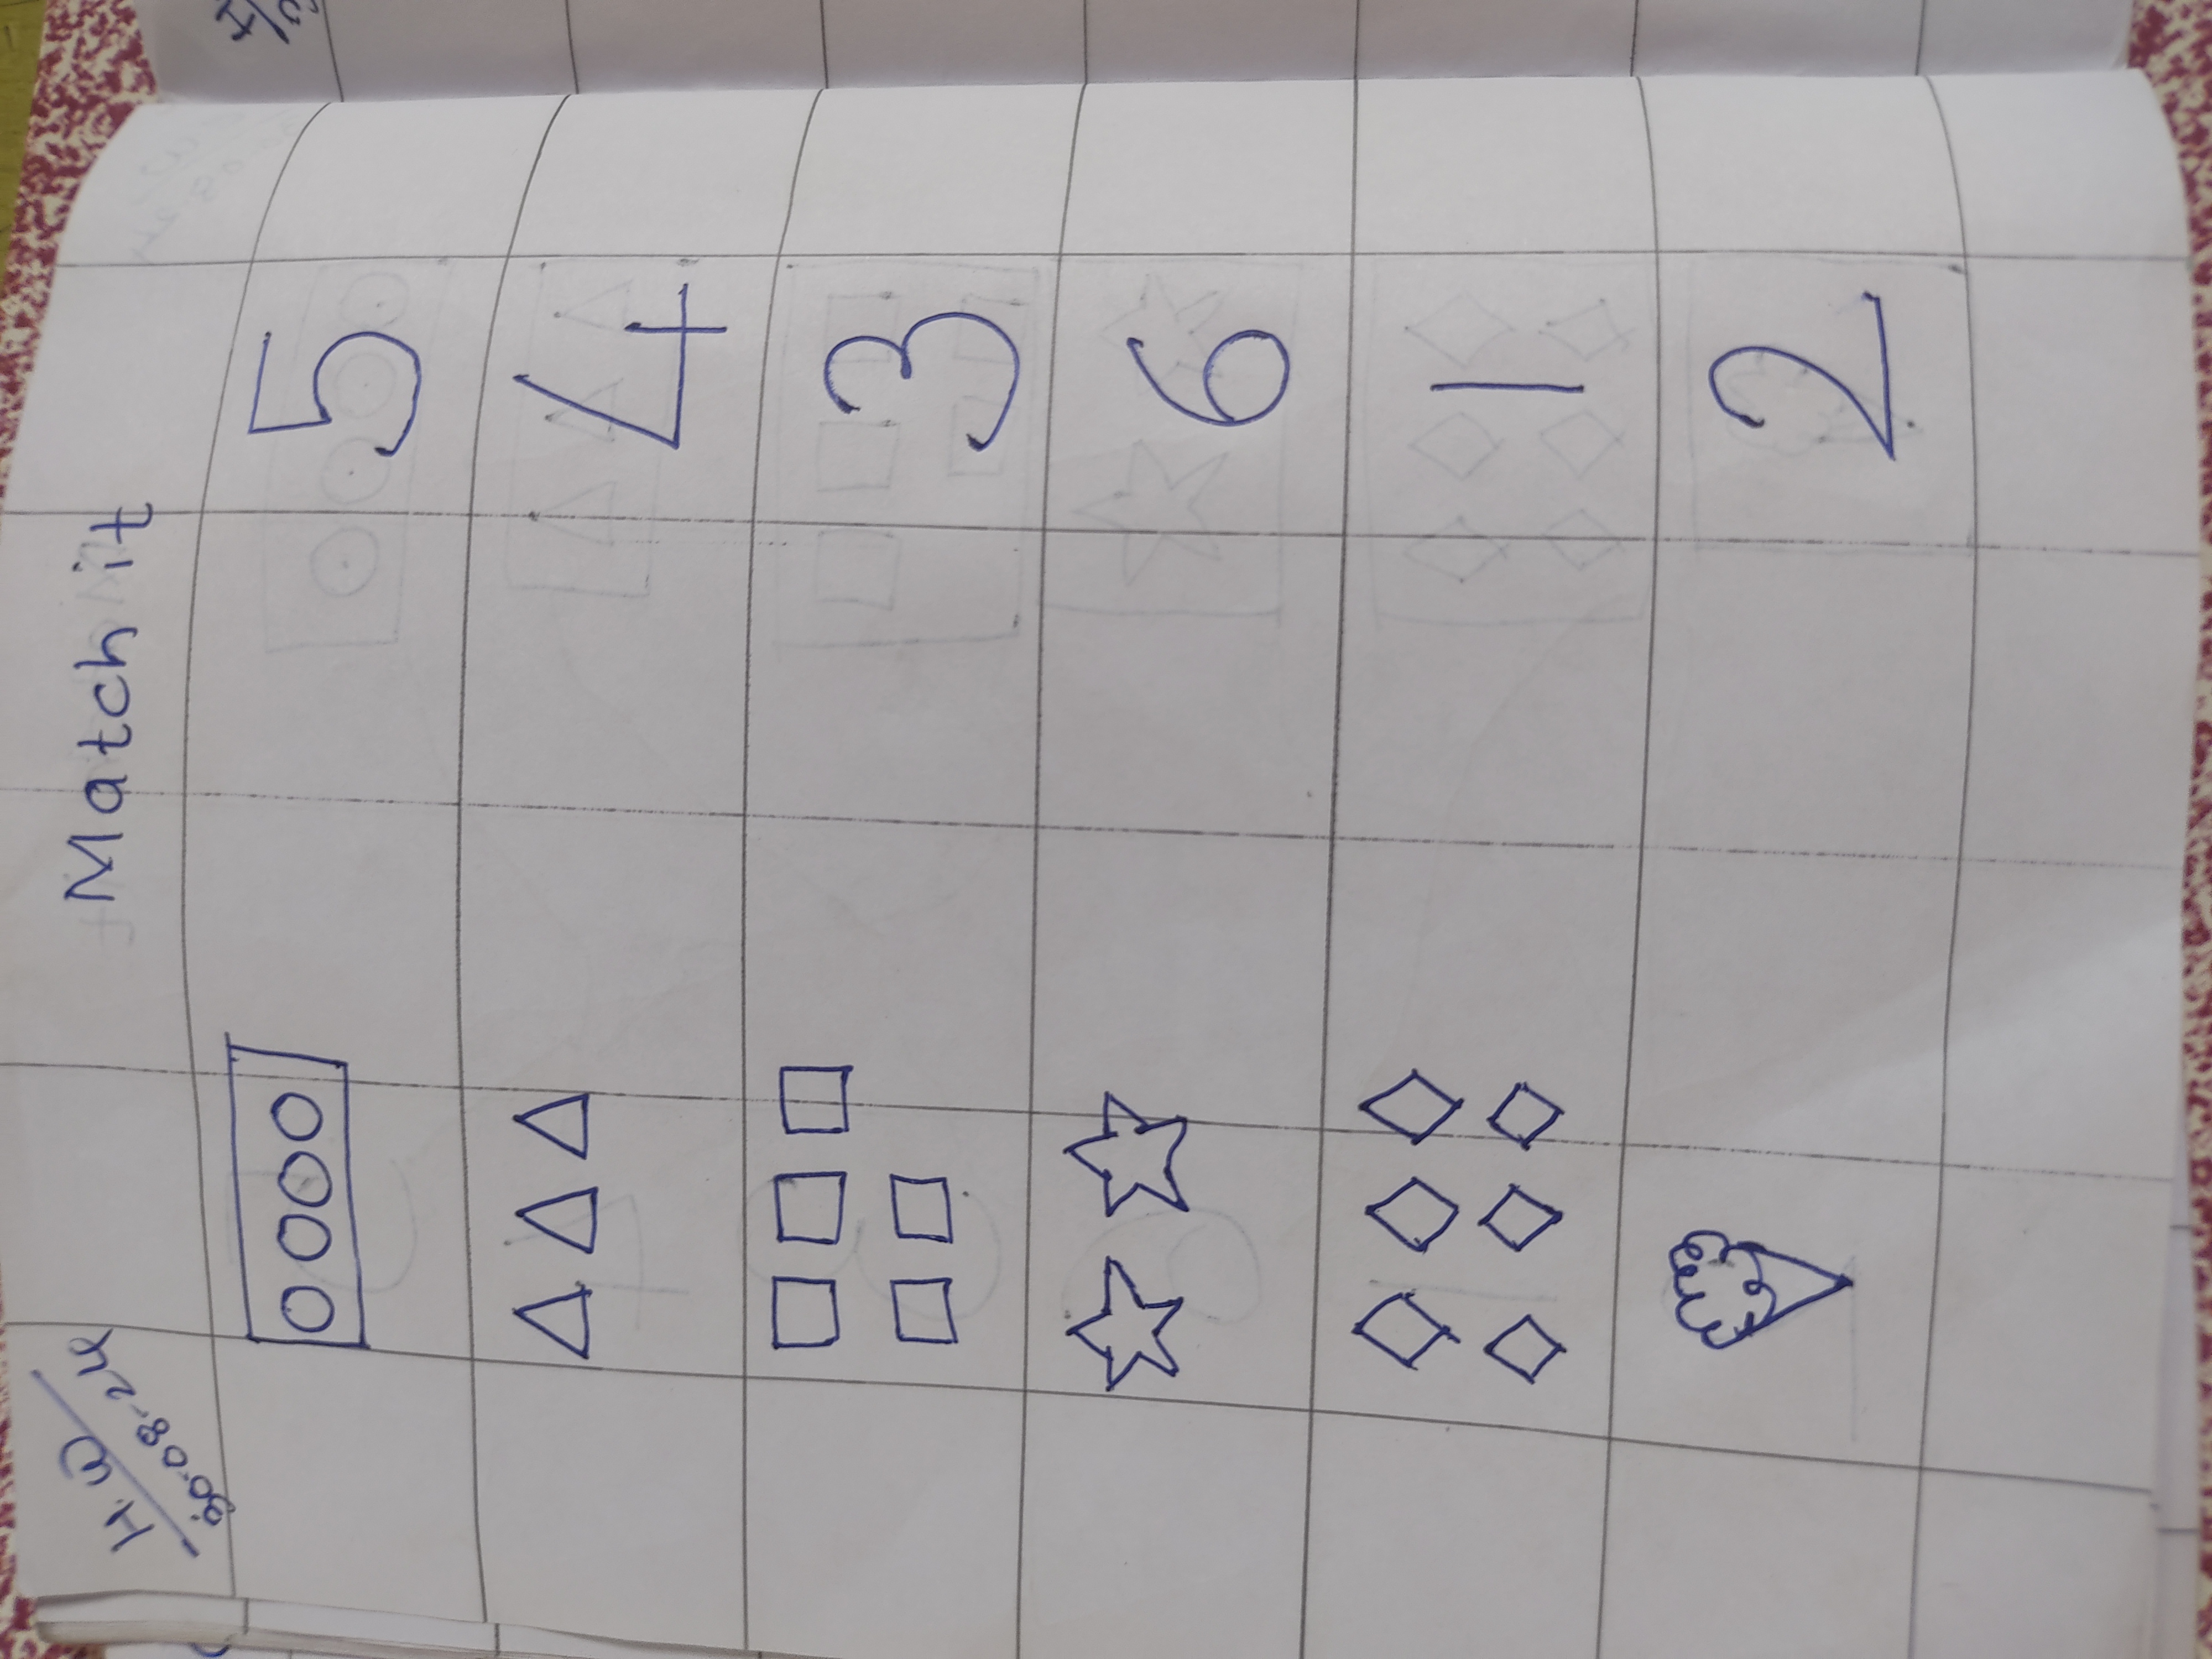 H.W
30-08-24
Match it
5
4
3
6
1
2